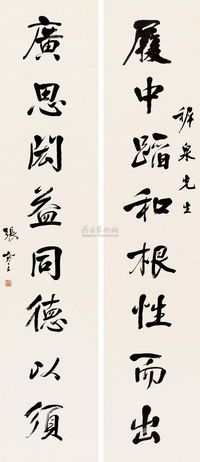 泉先生
履中蹈和根性而出
廣思閎益同德以須
張